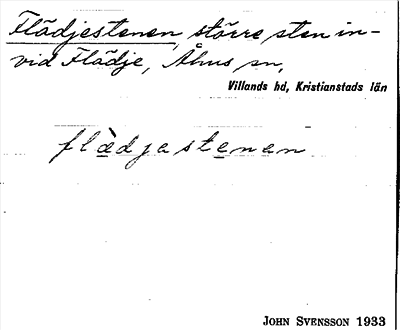 Flädjestenen, större sten in-
vid Flädje, Åhus sn,
Villands hd, Kristianstads län
flä̀djastenen
JOHN SVENSSON 1933